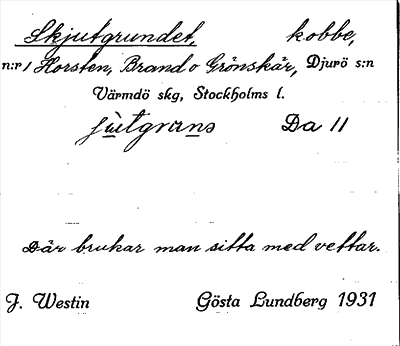 Skjutgrundet, kobbe,
n:r 1 Horsten, Brand o Grönskär, Djurö s:n
Värmdö skg, Stockholms l.
ju̇tgruns Da 11
Där brukar man sitta med vettar.
J. Westin Gösta Lundberg 1931